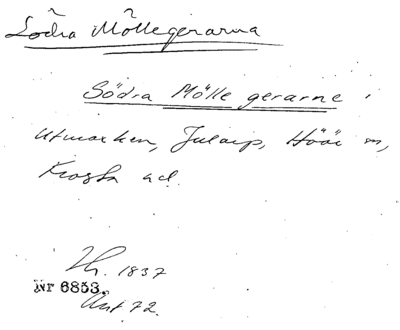 Södra Möllegerarna
Södra Mölle gerarne i
Utmarken, Jularp, Höör sn,
Frosta hd.
Lh. 1837
Nr 6853.
Akt 72.